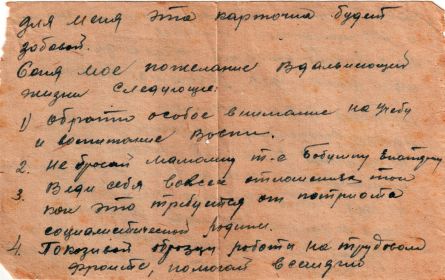 для меня эта карточка будет
забавой.
Саня мое пожелание вдальнеющей
жизни следующие:
1) обратто особое внимание на учебу
и воспитание Вости.
2. не бросай мамашу т-е Бабушку
3. Веди себя вовсех отношениях так
как это требуется от патриота
социалистической родины.
4. Показивай образци работи на трудовом
фронте, помогай